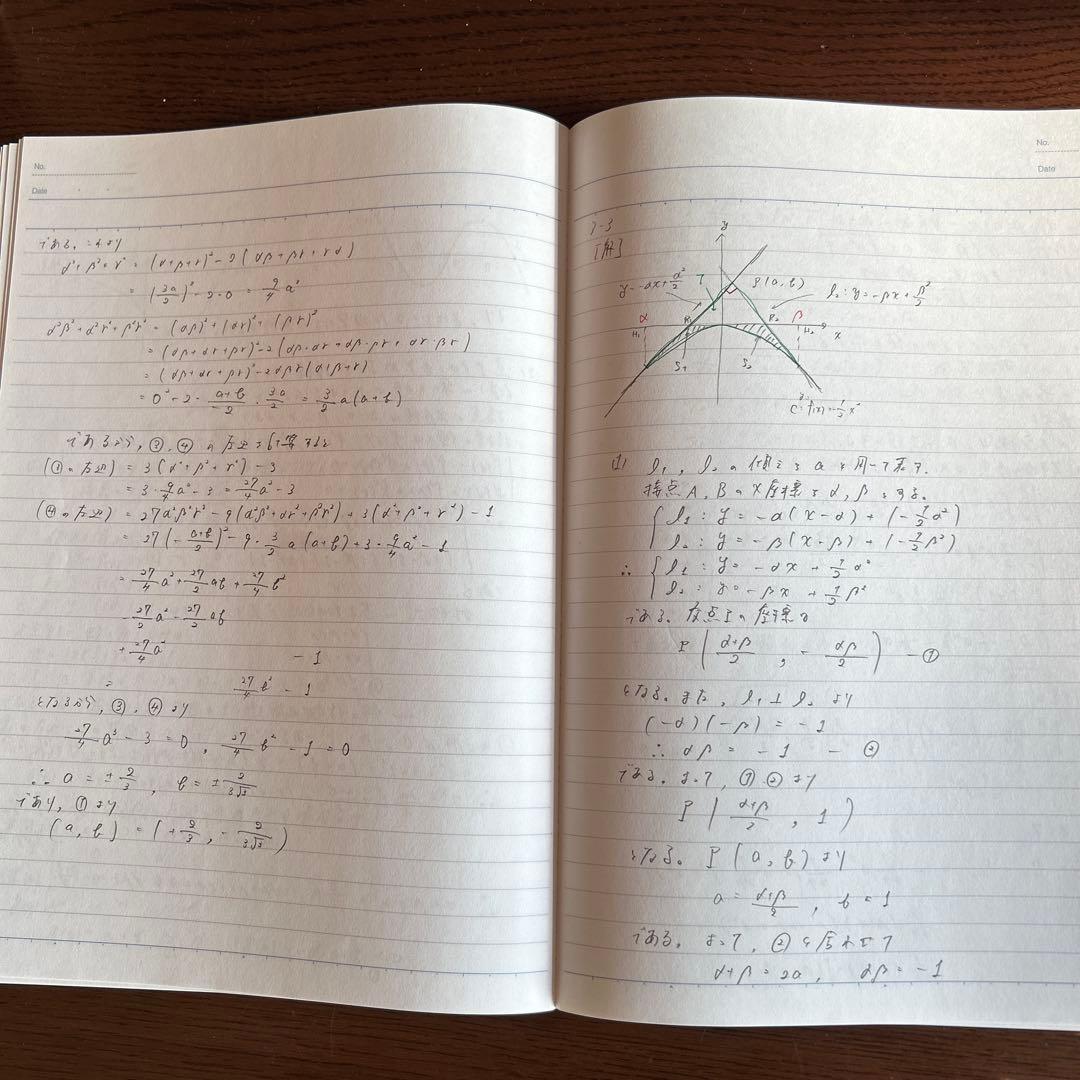 No.
Date
である。これより
α²+β²+γ² = (α+β+γ)²-2(αβ+βγ+γα)
= (3a/2)²-2・0 = 9/4 a²
α²β²+α²γ²+β²γ² = (αβ)²+(αγ)²+(βγ)²
= (αβ+αγ+βγ)²-2(αβ・αγ+αβ・βγ+αγ・βγ)
= (αβ+αγ+βγ)²-2αβγ(α+β+γ)
= 0²-2・(a+b)/-2・3a/2 = 3/2 a(a+b)
であるから, ③, ④の左辺を計算すると
(③の左辺) = 3(α²+β²+γ²)-3
= 3・9/4 a²-3 = 27/4 a²-3
(④の左辺) = 27α²β²γ²-9(α²β²+αγ²+β²γ²)+3(α²+β²+γ²)-1
= 27(-(a+b)/2)²-9・3/2 a(a+b)+3・9/4 a²-1
= 27/4 a²+27/2 ab+27/4 b²
-27/2 a²-27/2 ab
+27/4 a²
-1
= 27/4 b²-1
となるから, ③, ④より
27/4 a³-3=0, 27/4 b²-1=0
∴ a=±2/3, b=±2/3√3
であり, ①より
(a, b) = (+2/3, -2/3√3)
No.
Date
7-3
[解]
y
y=-αx+α²/2
P(a, b)
l₂: y=-βx+β²/2
α
H₁
R₁
R₂
β
H₂
x
S₁
S₂
C: y=f(x)=-1/2 x²
(1) l₁, l₂の傾きをaを用いて表す.
接点A, Bのx座標をα, βとする。
l₁: y=-α(x-α)+(-1/2 α²)
l₂: y=-β(x-β)+(-1/2 β²)
∴ l₁: y=-αx+1/2 α²
l₂: y=-βx+1/2 β²
である。交点Pの座標は
P((α+β)/2, -αβ/2) -①
となる。また, l₁⊥l₂より
(-α)(-β)=-1
∴ αβ=-1 -②
である。よって, ①②より
P((α+β)/2, 1)
となる。P(a, b)より
a=(α+β)/2, b=1
である。よって, ②と合わせて
α+β=2a, αβ=-1